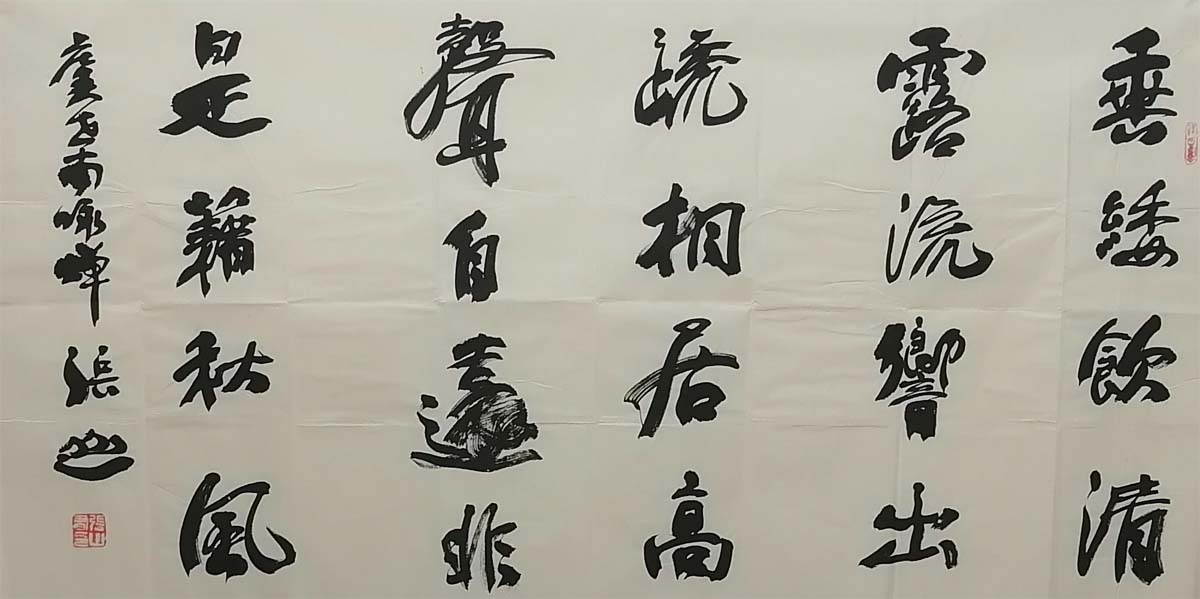 垂緌飲清
露流響出
疏桐居高
聲自遠非
是藉秋風
虞世南咏蟬 張山